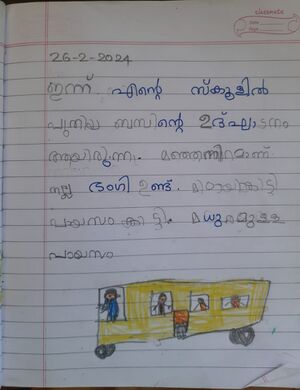 classmate
Date
Page
26-2-2024
ഇന്ന് എന്റെ സ്കൂളിൽ
പുതിയ ബസിന്റെ ഉദ്ഘാടനം
ആയിരുന്നു. മഞ്ഞനിറമാണ്
നല്ല ഭംഗി ഉണ്ട്. മിഠായികിട്ടി
പായസം കിട്ടി. മധുരമുള്ള
പായസം